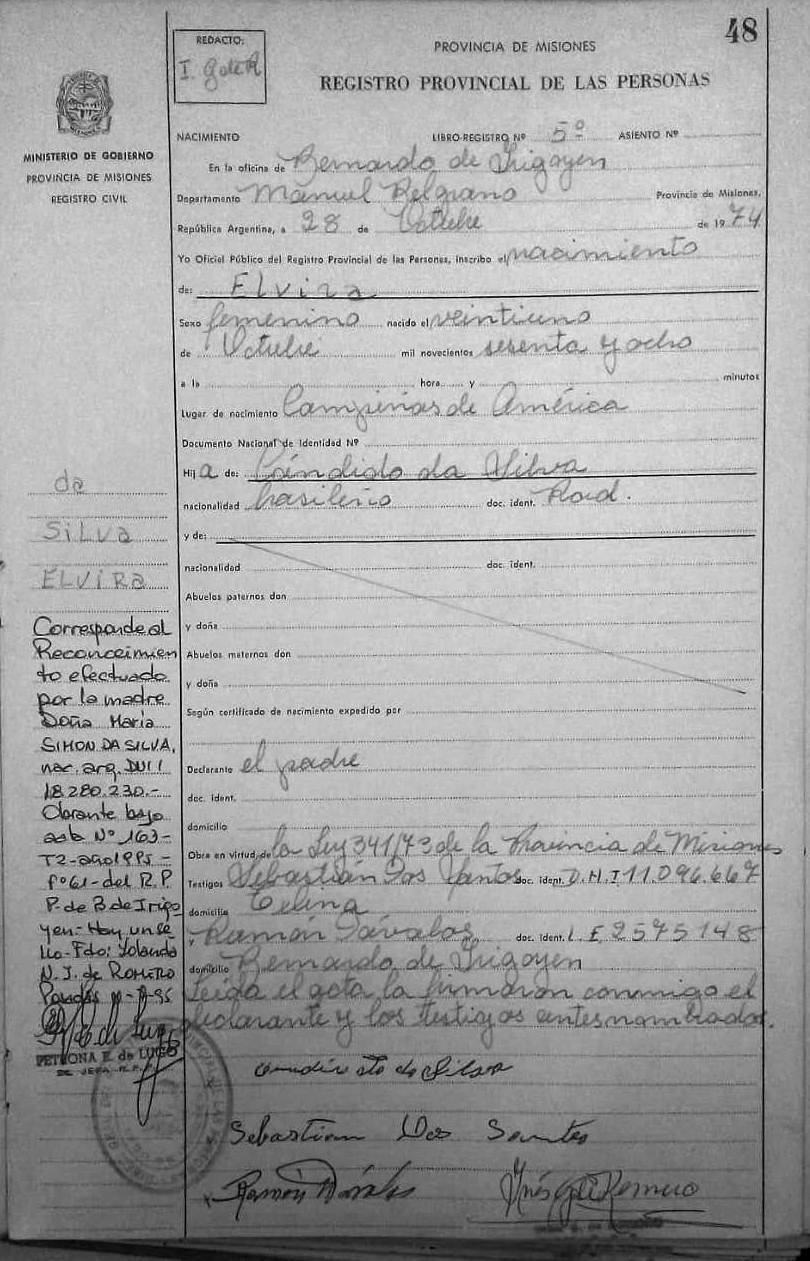 48
REDACTO:
I. G de R
PROVINCIA DE MISIONES
REGISTRO PROVINCIAL DE LAS PERSONAS
MINISTERIO DE GOBIERNO
PROVINCIA DE MISIONES
REGISTRO CIVIL
NACIMIENTO LIBRO-REGISTRO Nº 5º ASIENTO Nº
En la oficina de Bernardo de Irigoyen
Departamento Manuel Belgrano Provincia de Misiones,
República Argentina, a 28 de Octubre de 1974
Yo Oficial Público del Registro Provincial de las Personas, inscribo el nacimiento
de: Elvira
Sexo femenino nacido el veintiuno
de Octubre mil novecientos sesenta y ocho
a la hora y minutos
Lugar de nacimiento Campiñas de América
Documento Nacional de Identidad Nº
Hij a de: Cándido da Silva
nacionalidad brasileño doc. ident.
y de:
nacionalidad doc. ident.
Abuelos paternos don
y doña
Abuelos maternos don
y doña
Según certificado de nacimiento expedido por
Declarante el padre
doc. ident.
domicilio
Obra en virtud de la Ley 341/73 de la Provincia de Misiones
Testigos Sebastián Dos Santos doc. ident. D.N.I 11.096.667
domicilio
y Ramón Dávalos, doc. ident. L.E 2575148
domicilio Bernardo de Irigoyen
Leída el acta la firmaron conmigo el
declarante y los testigos antes nombrados.
da
Silva
ELVIRA
Corresponde al
Reconocimien
to efectuado
por la madre
Doña Maria
SIMON DA SILVA,
nac. arg. DNI
18.280.230.-
Obrante bajo
acta Nº 163-
T2-año 1995-
fº 61-del R.P.
P. de B de Irigo
yen- Hay un se
llo-Fdo: Yolanda
N. J. de ROMERO
Posadas
PETRONA E. de LUGO
Sebastian Dos Santos
Ramón Dávalos
Inés G de Romero